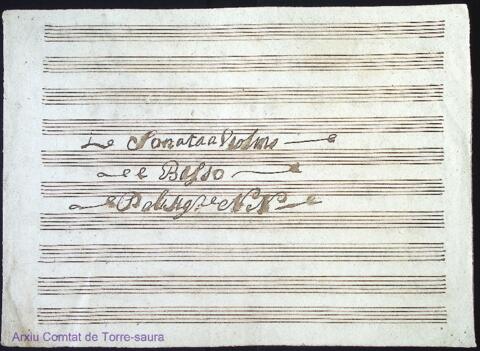 Sonata a Violino
e Basso
Del Sigre N. N.
Arxiu Comtat de Torre-saura